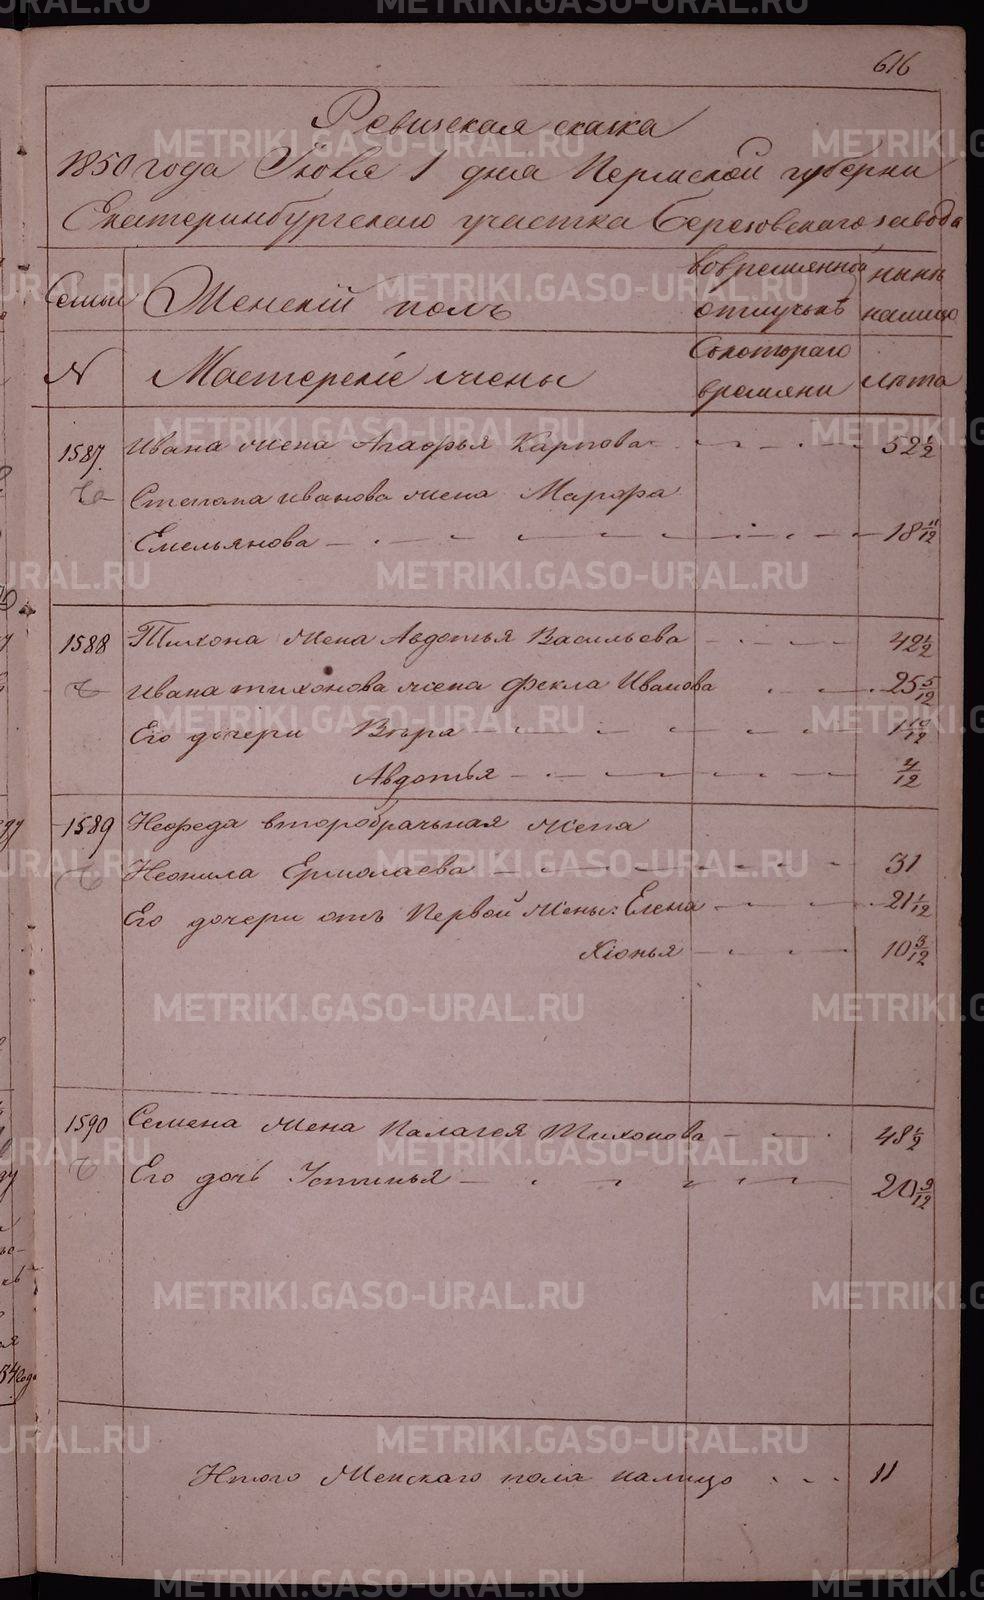 616
Ревизская сказка
1850 года Июля 1 дня Пермской губернии
Екатеринбургскаго участка Березовскаго завода
Семьи
Женскій полъ
вовремянной отлучкѣ
нынѣ налицо
N
Мастерскіе жены
Скотораго времяни
лѣта
1587. Ивана жена Агафья Карпова 52 1/2
Степана иванова жена Марфа
Емельянова 18 11/12
1588 Тихона жена Авдотья Васильева 42 1/2
Ивана тихонова жена Фекла Иванова 25 5/12
Его дочери Вѣра 1 10/12
Авдотья 4/12
1589 Нефеда второбрачьная жена
Неонила Ермолаева 31
Его дочери отъ Первой жены: Елена 21 1/12
Хіонья 10 3/12
1590 Семена жена Палагея Тихонова 48 1/2
Его дочь Устинья 20 9/12
Итого Женскаго пола налицо 11
METRIKI.GASO-URAL.RU